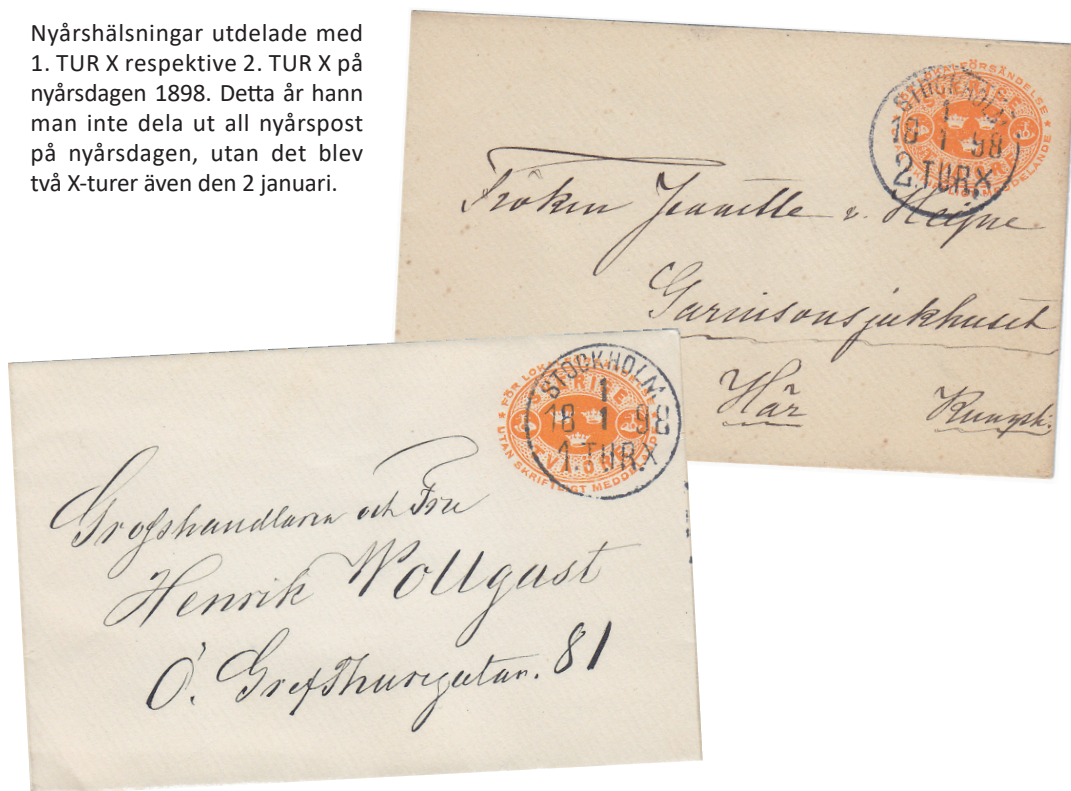 Nyårshälsningar utdelade med
1. TUR X respektive 2. TUR X på
nyårsdagen 1898. Detta år hann
man inte dela ut all nyårspost
på nyårsdagen, utan det blev
två X-turer även den 2 januari.
STOCKHOLM
1
18 1 98
2. TUR X
Fröken Jeanette v. Heijne
Garnisonsjukhuset
Här
STOCKHOLM
1
18 1 98
1. TUR X
UTAN SKRIFTLIGT
Grosshandlaren och Fru
Henrik Wollgast
Ö. Gref Thuregatan. 81